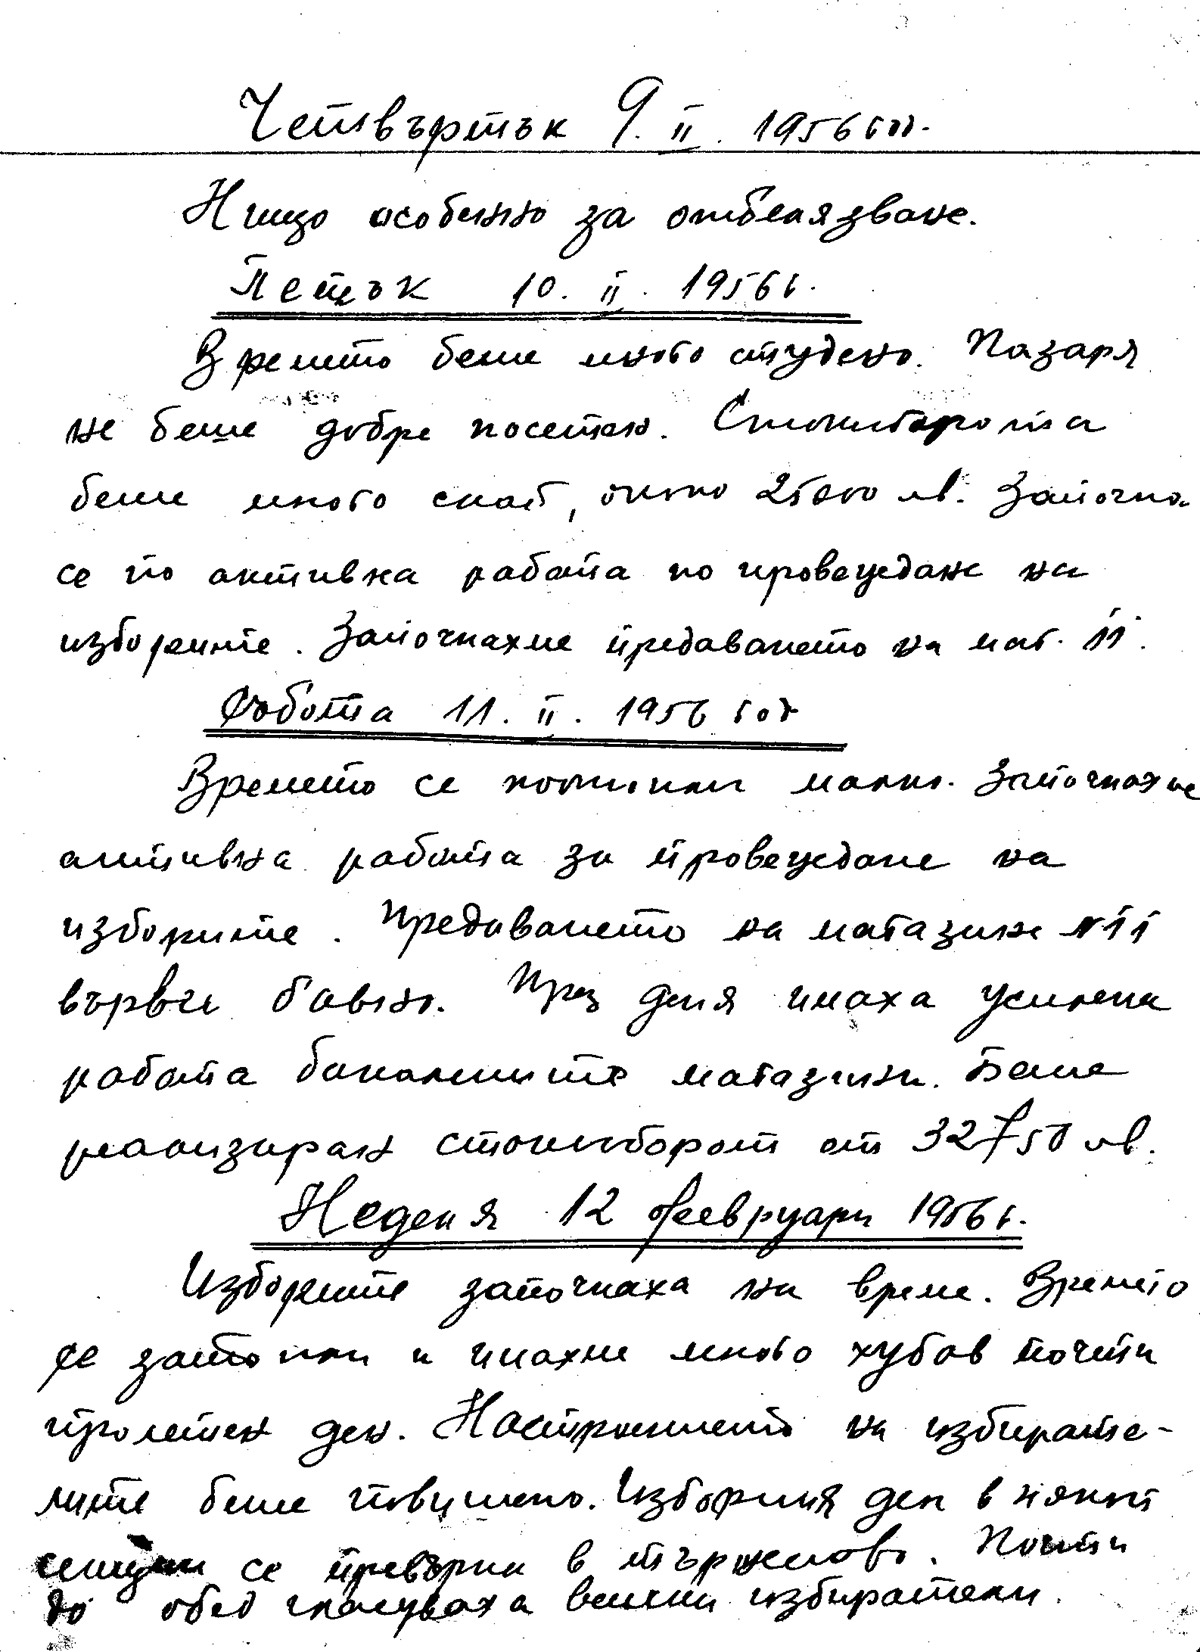 Четвъртък 9. II. 1956 год.
Нищо особенно за отбелязване.
Петък 10. II. 1956 г.
Времето беше много студено. Пазаря
не беше добре посетен. Стокооборота
беше много слаб, около 25000 лв. Започна
се по активна работа по провеждане на
изборите. Започнахме предаването на маг. 11.
Събота 11. II. 1956 год
Времето се постопли малко. Започнахме
активна работа за провеждане на
изборите. Предаването на магазин № 11
върви бавно. През деня имаха усилена
работа бакалските магазини. Беше
реализиран стокооборот от 32750 лв.
Неделя 12 февруари 1956 г.
Изборите започнаха на време. Времето
се затопли и имахме много хубав почти
пролетен ден. Настроението на избирате-
лите беше повишено. Изборния ден в някои
секции се превърна в тържество. Почти
до обед гласуваха всички избиратели.